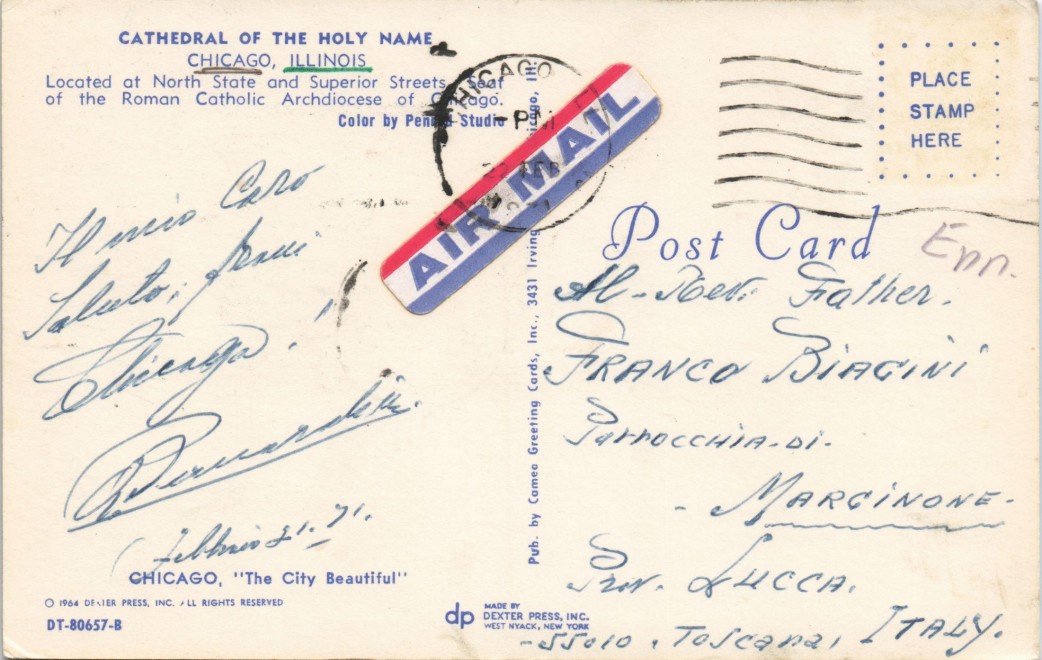 CATHEDRAL OF THE HOLY NAME
CHICAGO, ILLINOIS
Located at North State and Superior Streets. Seat
of the Roman Catholic Archdiocese of Chicago.
Color by Studio
CHICAGO
PM
22 FEB
AIR MAIL
PLACE
STAMP
HERE
Post Card
Enn.
Il mio Caro
Saluto,
Chicago.
Bernardin.
Febbraio 21. 71.
CHICAGO, "The City Beautiful"
© 1964 DEXTER PRESS, INC. ALL RIGHTS RESERVED
DT-80657-B
Pub. by Cameo Greeting Cards, Inc., 3431 Irving Chicago, Ill.
Al-Rev. Father.
FRANCO BIAGINI
Parrocchia-di.
- MARGINONE-
Prov. LUCCA.
-55010, Toscana, ITALY.
dp
MADE BY
DEXTER PRESS, INC.
WEST NYACK, NEW YORK